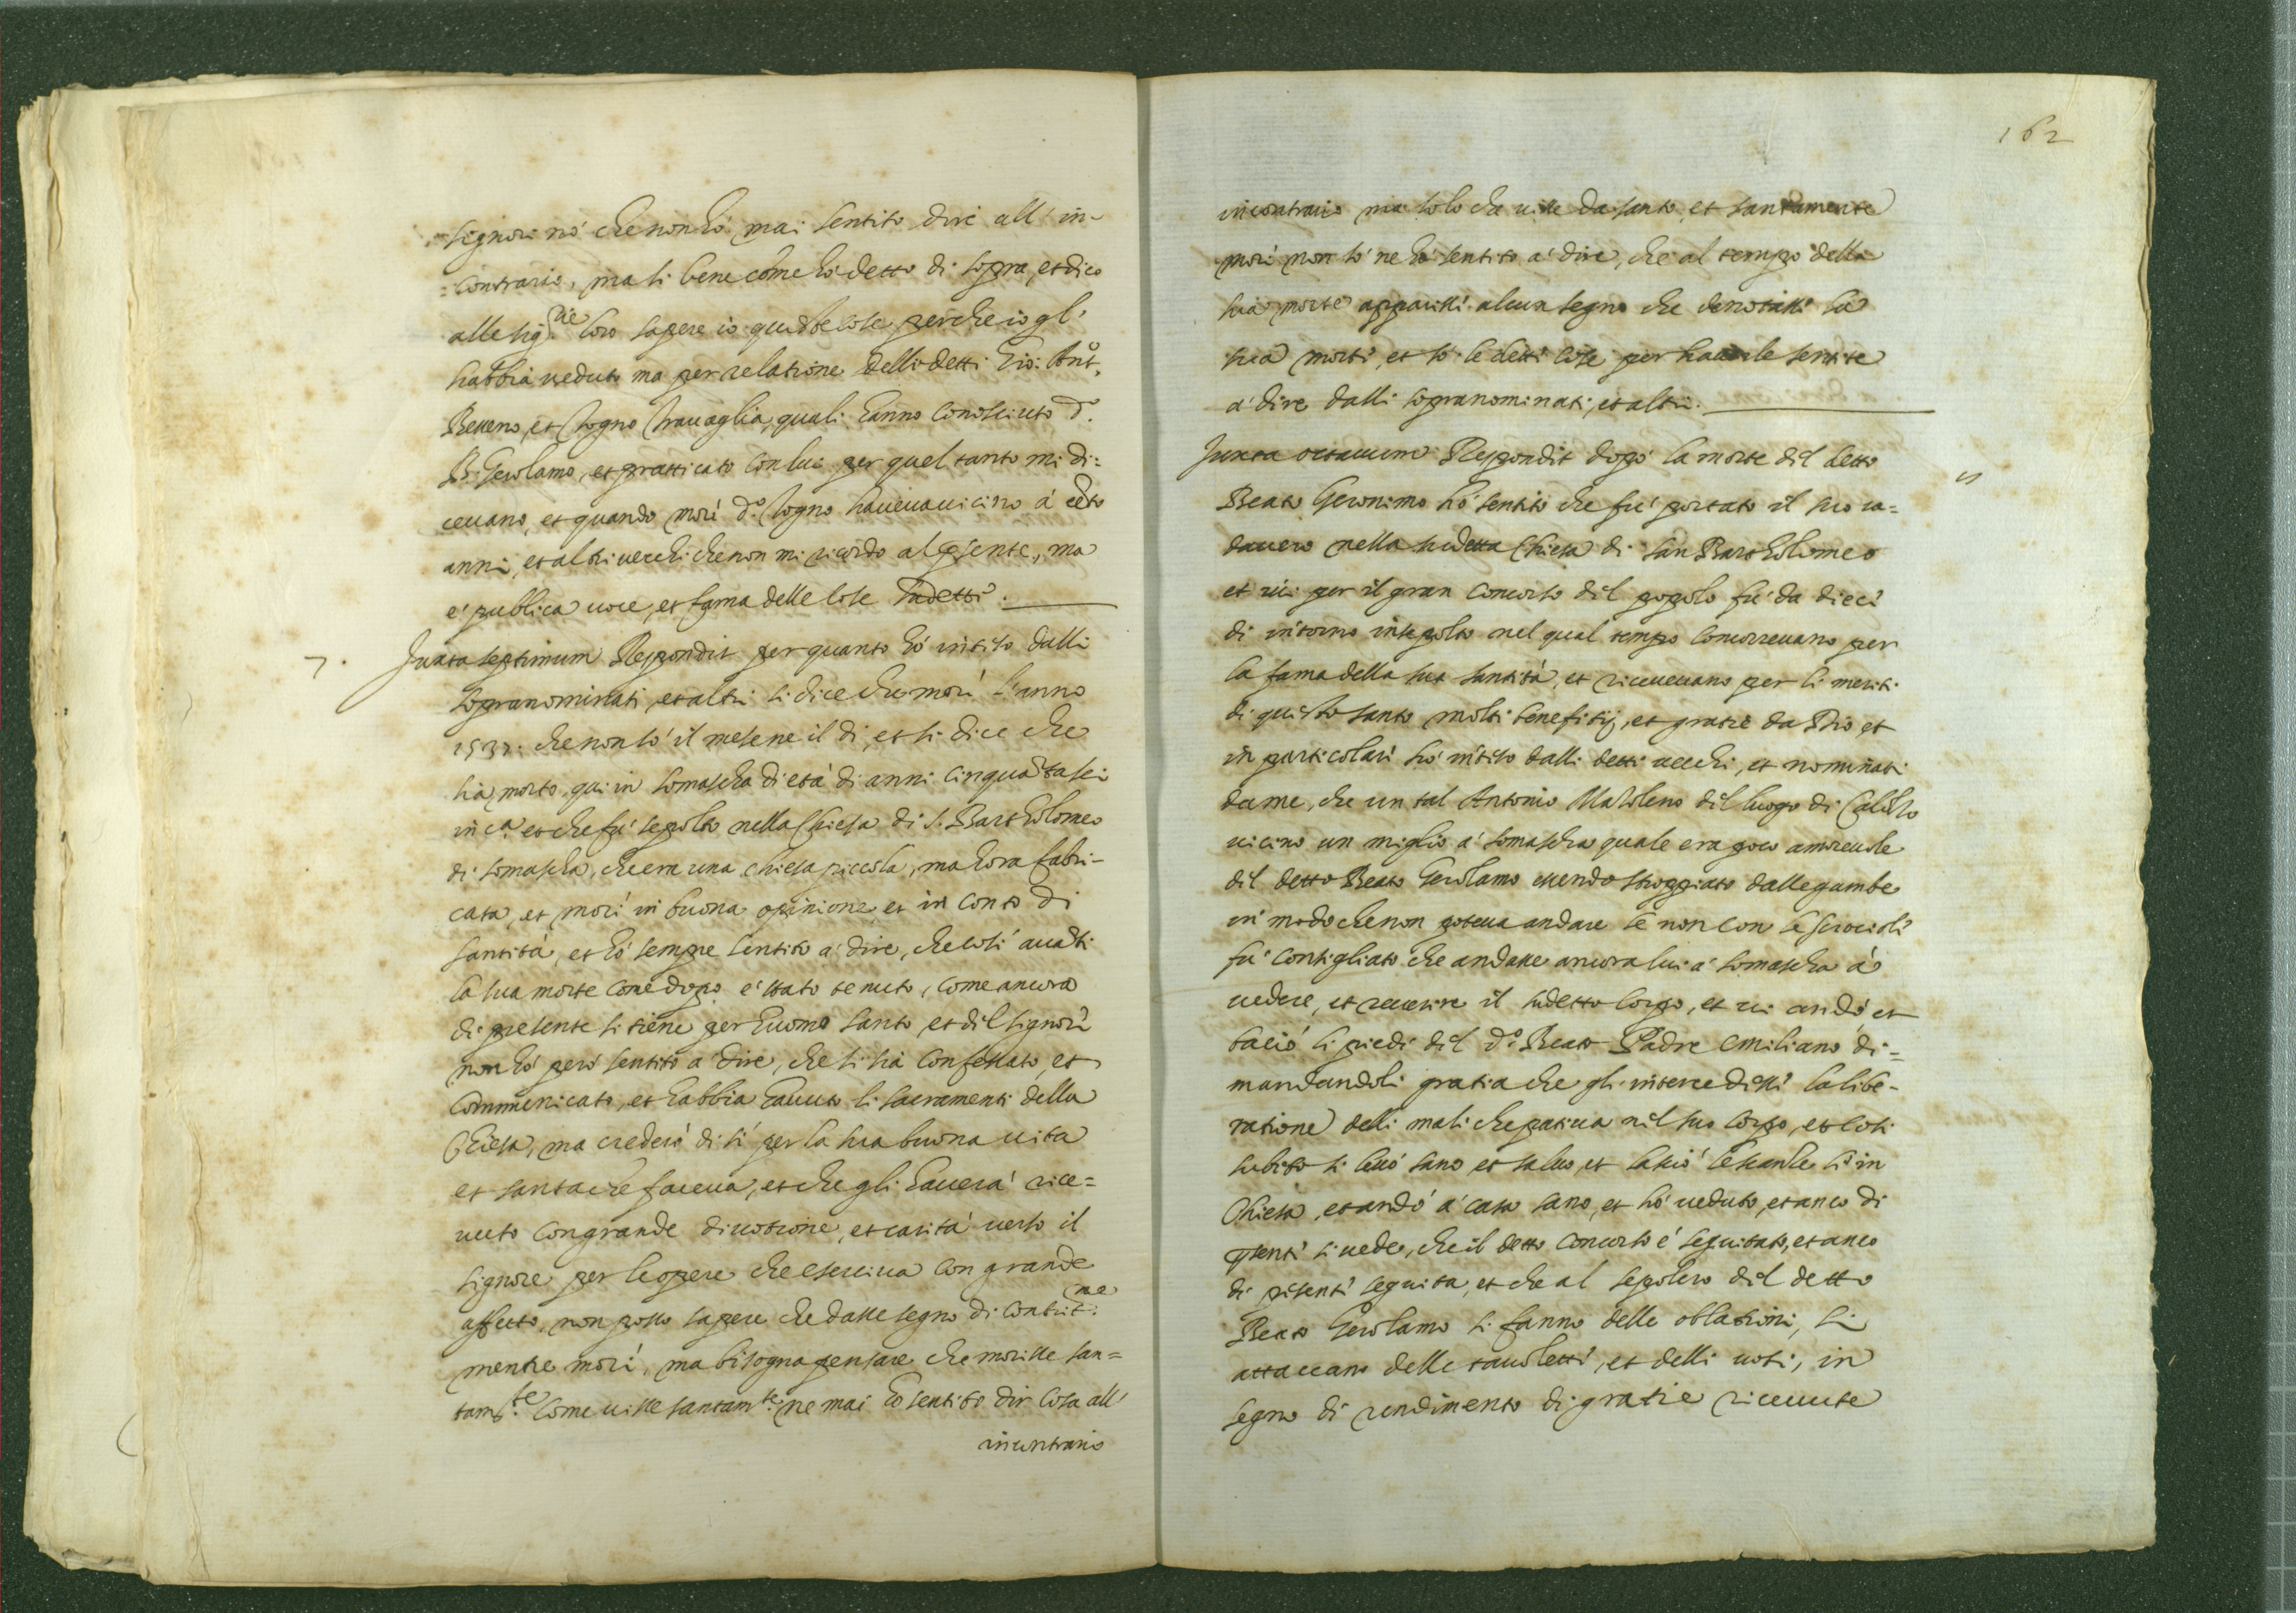 signori nò che non hò mai sentito dire all' in-
contrario, ma si bene come hò detto di sopra, et dico
alle sig.rie loro sapere io queste cose perche io gl'
habbia veduto ma per relatione delli detti Gio: Ant.o
et Togno Travaglia, quali hanno conosciuto d.o
B. Gerolamo, et pratticato con lui per quel tanto mi di:
cevano, et quando morì d.o Togno haveva vicino à cēto
anni, et altri vecchi che non mi ricordo al pñte, ma
è publica voce, et fama delle cose sudette.
7. Juxta septimum Respondit per quanto hò inteso dalli
sopranominati, et altri si dice che morì l'anno
che non sò il mese ne il dì, et si dice che
sia morto qui in Somascha di età di anni cinquātasei
in c.a et che fù sepolto nella Chiesa di S. Bartholomeo
di Somascha, che era una chiesa piccola, ma hora fabri-
cata, et morì in buona opinione, et in conto di
santità, et hò sempre sentito a dire, che così auāti
la sua morte come dopo è stato tenuto, come ancora
di presente si tiene per huomo santo, et dil signori
non hò però sentito a dire, che si sia confessato, et
communicato, et habbia havuto li sacramenti della
Chiesa, ma crederò di sì per la sua buona vita
et santa che faceva, et che gli haverà rice=
vuto con grande divotione, et carità verso il
signore per le opere che eserciva con grande
affetto, non posso sapere che dasse segno di contrit.ne
mentre morì, ma bisogna pensare che morisse san=
tam.te come visse santam.te ne mai hò sentito dir cosa all'
incontrario
162
incontrario ma solo che visse da santo, et santamente
morì non sò ne hò sentito a dire, che al tempo della
sua morte apparissi alcun segno che denotassi la
sua morte, et sò le dette cose per haverle sentite
a dire dalli sopranominati, et altri.
Juxta octavum Respondit dopò la morte del detto
Beato Geronimo hò sentito che fù portato il suo ca=
davero nella sudetta Chiesa di San Bartholomeo
et ivi per il gran concorso dil popolo fù da dieci
dì intorno insepolto nel qual tempo concorrevano per
la fama della sua santità, et ricevevano per li meriti
di questo santo molti benefitij, et gratie da Dio, et
in particolari hò inteso dalli detti vecchi, et nominati
da me, che un tal Antonio Mazoleno dil luogo di Calolzo
vicino un miglio a Somascha quale era poco amorevole
dil detto Beato Gerolamo essendo stroppiato dalle gambe
in modo che non poteva andare se non con le scrociole
fù consigliato che andasse ancora lui a Somascha à
vedere, et reverire il sudetto corpo, et vi andò et
baciò li piedi dil d.o Beato Padre Emiliano di=
mandandoli gratia che gli intercedessi la libe-
ratione delli mali che pativa nil suo corpo, et così
subito si levò sano et salvo, et lassiò le scanle lì in
Chiesa, et andò a casa sano, et hò veduto, et anco di
pñte si vede, che il detto concorso è seguitato, et anco
di presenti seguita, et che al sepolcro dil detto
Beato Gerolamo si fanno delle oblationi, si
attaccano delle tavoletti, et delli voti, in
segno di rendimento di gratie ricevute